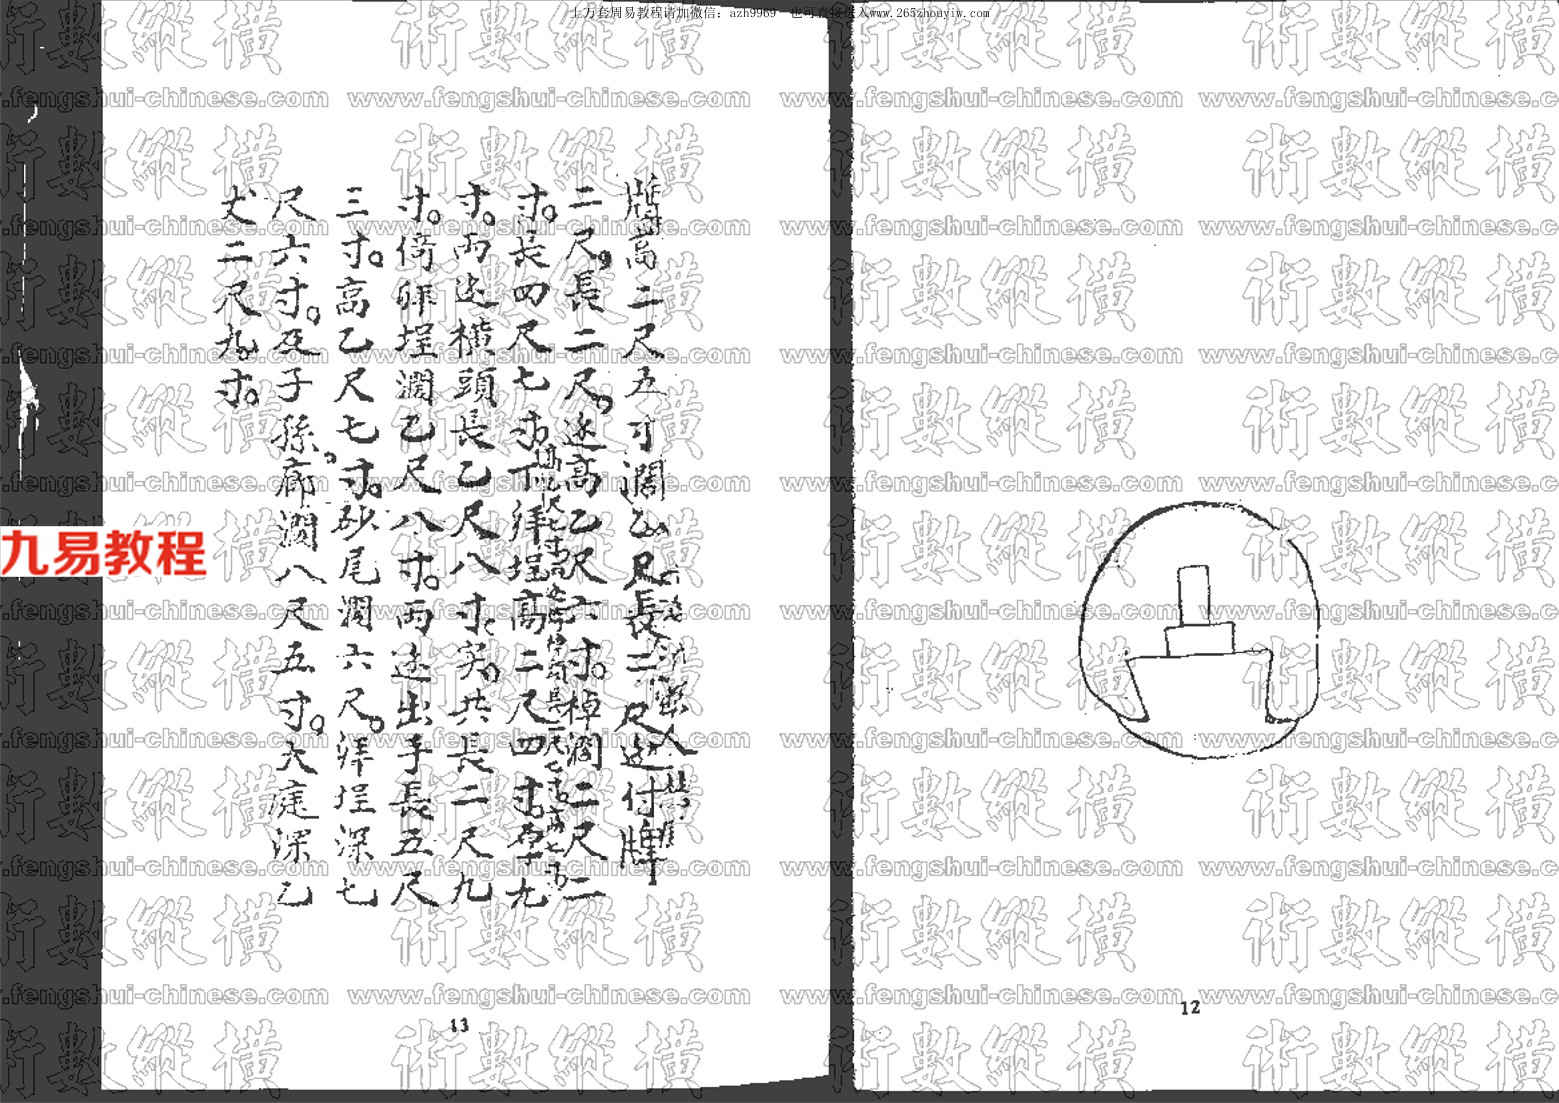 上万套周易教程请加微信：azh9969 也可直接进入www.265zhouyiw.com
術數縱橫
www.fengshui-chinese.com
九易教程
牌高二尺五寸濶乙尺長二尺迯付牌
二尺長二尺迯高乙尺六寸棹濶二尺二
寸長四尺七寸下拜埕高二尺四寸厚九
寸两迯橫頭長乙尺八寸実共長二尺九
寸倚拜埕濶乙尺八寸两迯出手長五尺
三寸高乙尺七寸砂尾濶六尺拜埕深七
尺六寸及子孫廊濶八尺五寸大庭深乙
丈二尺九寸
13
12